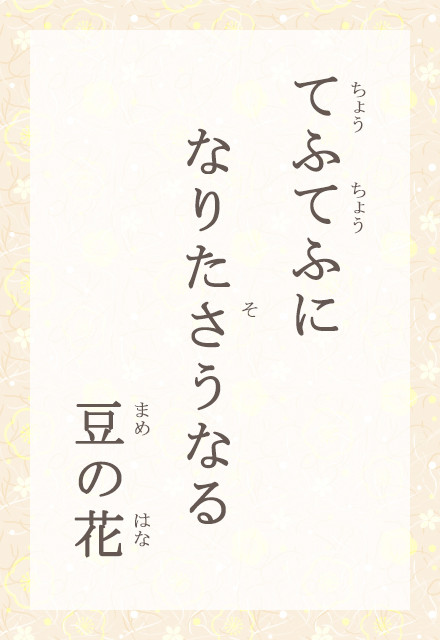 てふてふに
ちょう ちょう
なりたさうなる
そ
豆の花
まめ はな